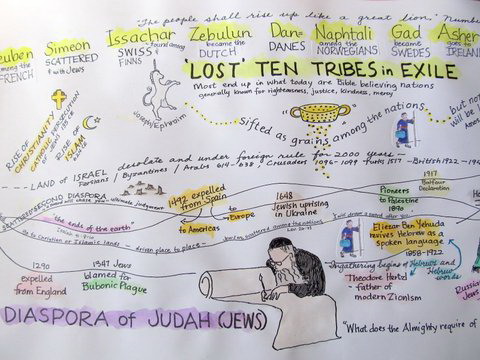 "The people shall rise up like a great lion. Numb
Reuben
among the
FRENCH
Simeon
SCATTERED
with Jews
Issachar
found among
SWISS &
FINNS
Zebulun
became the
DUTCH
Dan=
DANES
Naphtali
among the
NORWEGIANS
Gad
became
SWEDES
Asher
goes to
IRELAND
'LOST' TEN TRIBES in EXILE
Most end up in what today are Bible believing nations
generally known for righteousness, justice, kindness, mercy
Joseph/Ephraim
Sifted as grains among the nations
but not
will be
RISE OF
CHRISTIANITY
CATHOLIC PERSECUTION
RISE OF
ISLAM
LAND OF ISRAEL
desolate and under foreign rule for 2000 years
Persians / Byzantines / Arabs 614-638, Crusaders 1096-1099 Turks 1517-British 1922-194
SECOND DIASPORA
ultimate judgment
the ends of the earth
to Christian or Islamic lands - driven place to place -
scattered among the nations
1492 expelled
from Spain
to
Europe
to Americas
1648
Jewish uprising
in Ukraine
Pioneers
to Palestine
1890
1917
Balfour
Declaration
Eliezer Ben Yehuda
revives Hebrew as
a spoken language
1858-1922
Ingathering begins of Hebrews and
Hebrew
words
Theodore Hertzl
father of
modern Zionism
Russian
Jews
1290
expelled
from England
1347 Jews
blamed for
Bubonic Plague
DIASPORA of JUDAH (JEWS)
"What does the Almighty require of